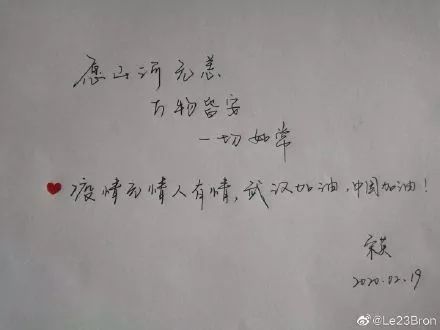 愿山河无恙
万物皆安
一切如常
疫情无情人有情,武汉加油,中国加油!
宋英
2020.02.19
@Le23Bron